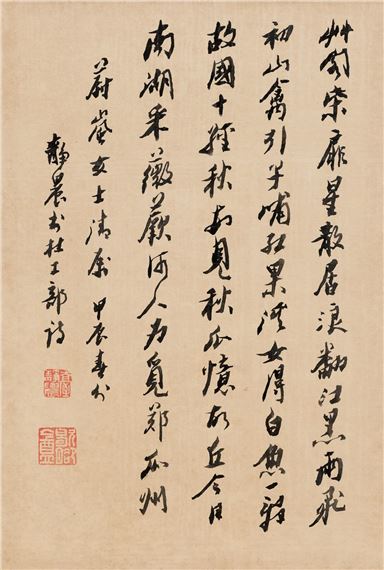 艸閣柴扉星散居浪翻江黑雨飛
初山禽引子哺紅果溪女得白魚一辞
故國十經秋每見秋瓜憶故丘今日
南湖采薇蕨何人为覓鄭瓜州
蔚 女士清屬 甲辰春
靜農书杜工部詩